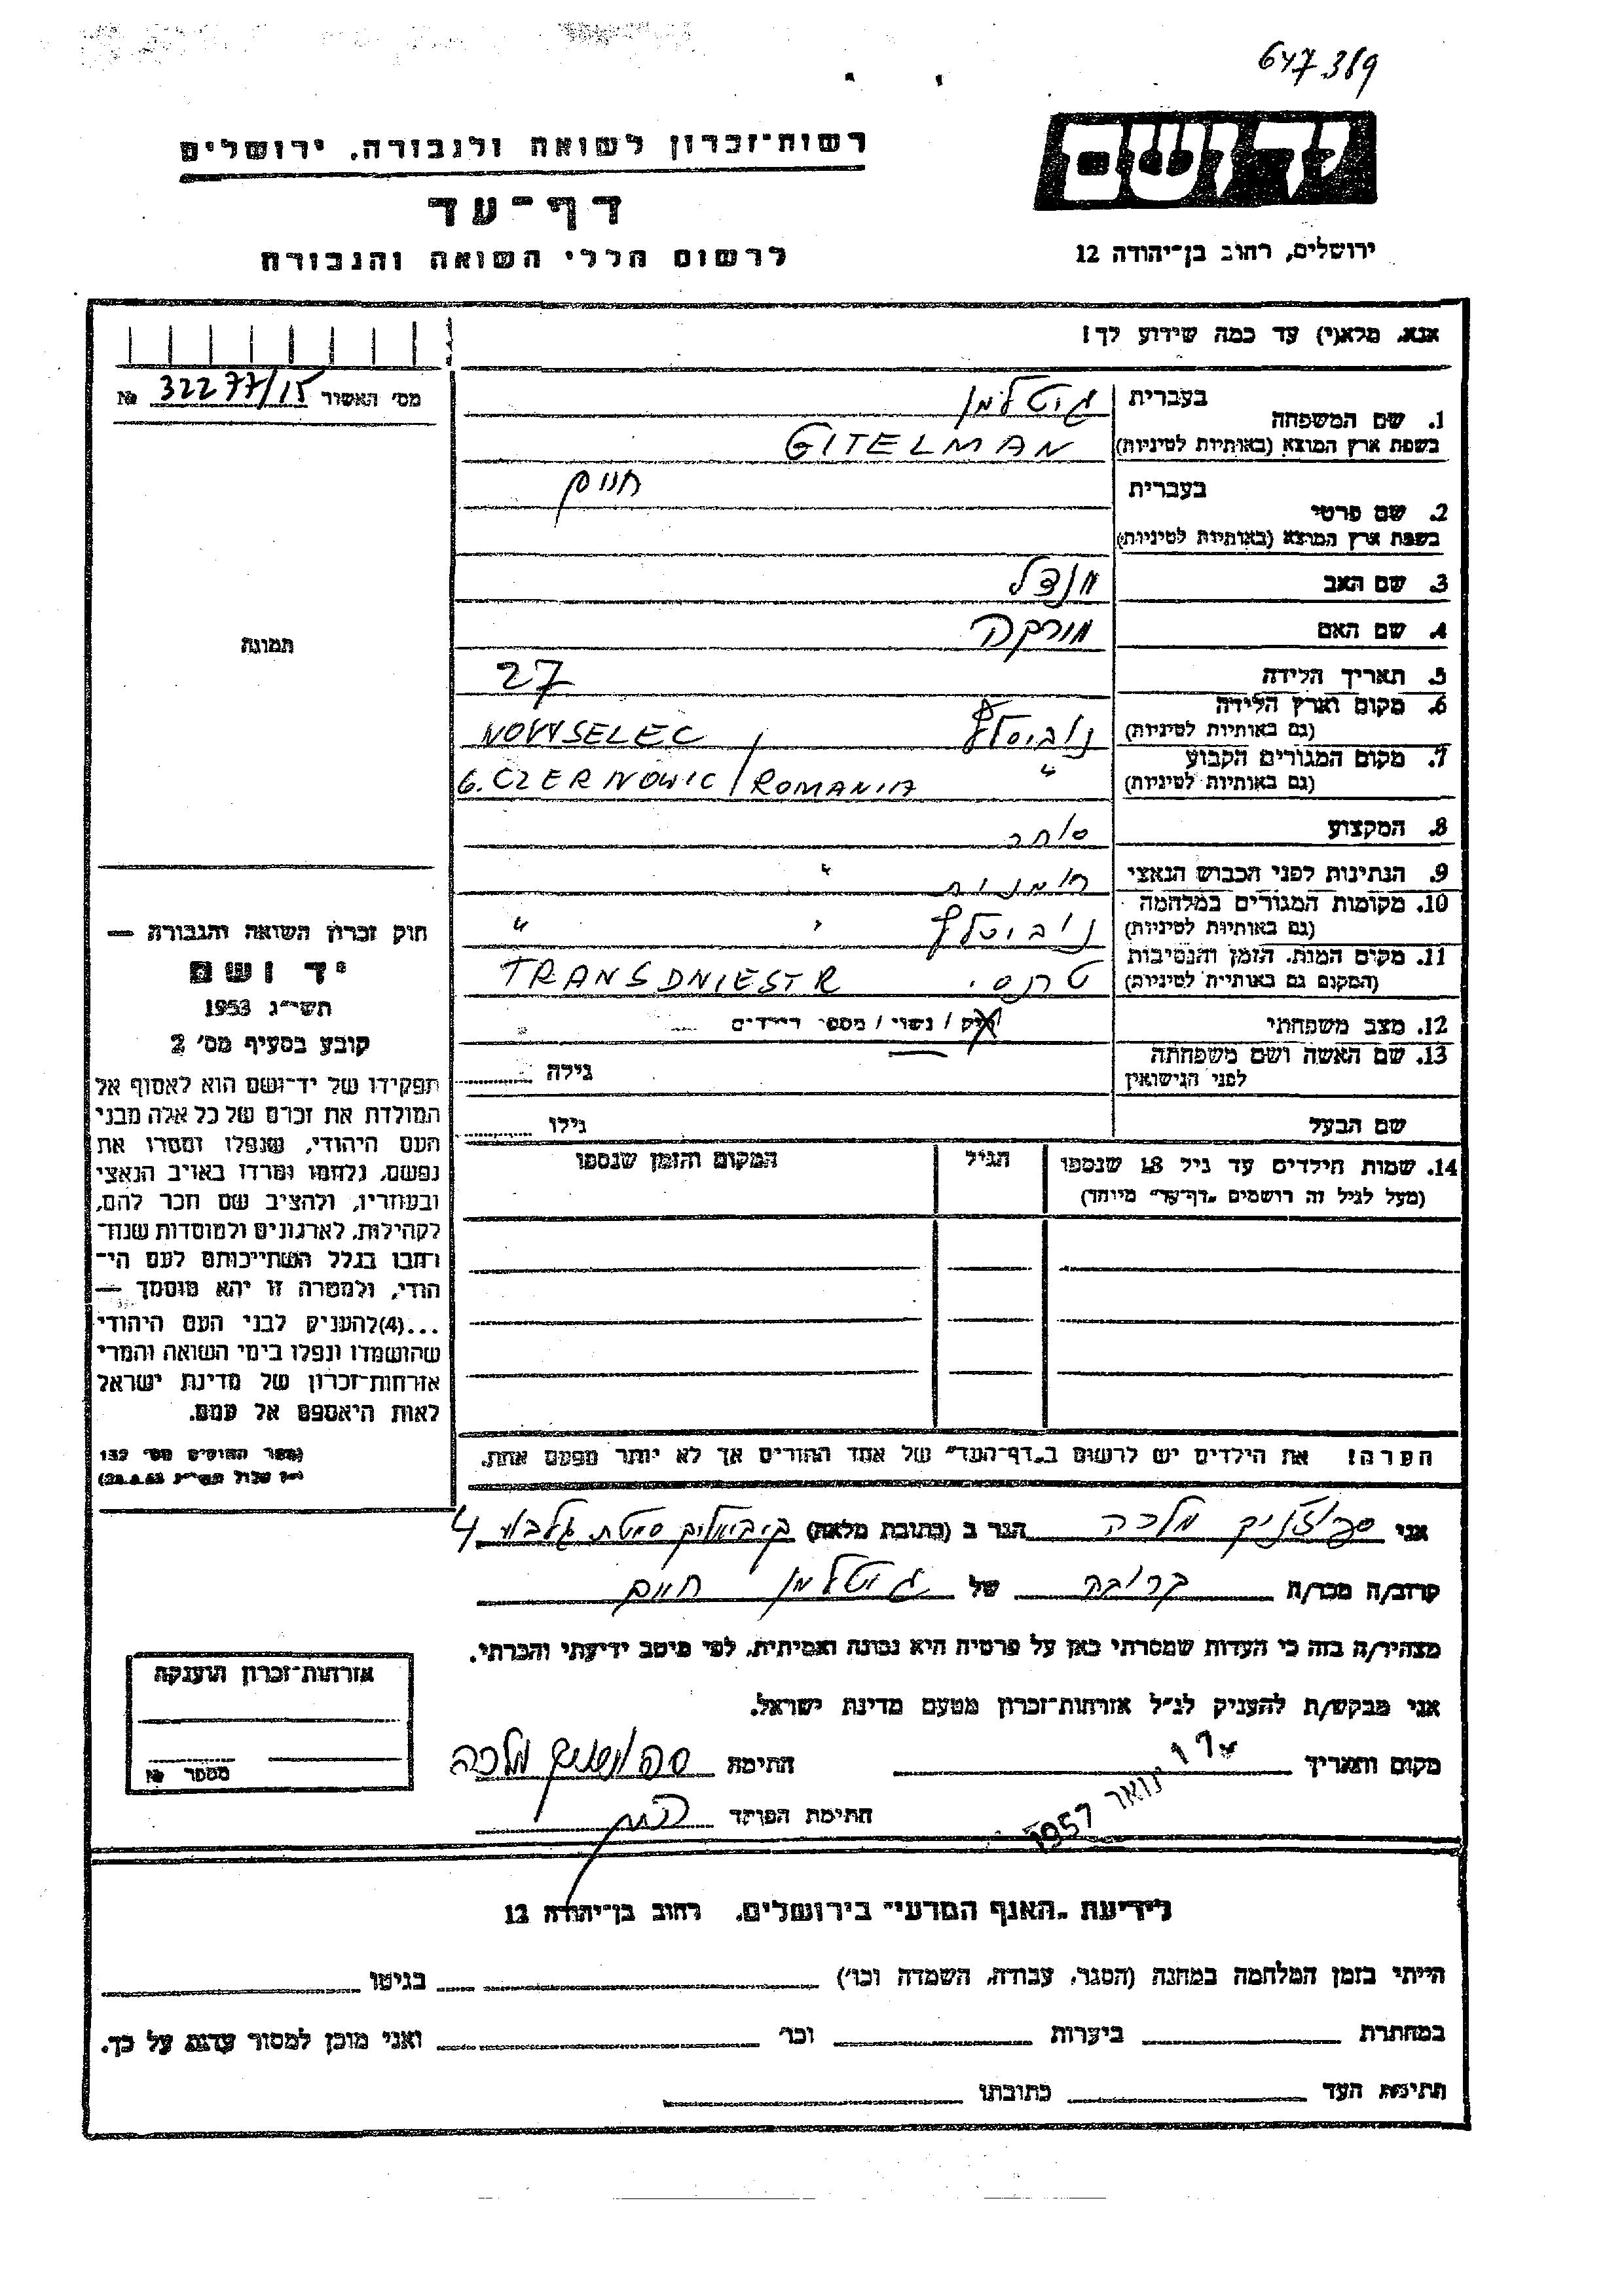 647389
רשות־זכרון לשואה ולגבורה, ירושלים
יד ושם
דף־עד
לרשום חללי השואה והגבורה
ירושלים, רחוב בן־יהודה 12
אנא, מלא(י) עד כמה שידוע לך!
מס' האשור 32277/15 №
1. שם המשפחה
בעברית גיטלמן
בשפת ארץ המוצא (באותיות לטיניות) GITELMAN
2. שם פרטי
בעברית חיים
בשפת ארץ המוצא (באותיות לטיניות)
3. שם האב מנדל
4. שם האם
תמונה
5. תאריך הלידה 27
6. מקום וארץ הלידה
(גם באותיות לטיניות) NOWYSELEC
7. מקום המגורים הקבוע "
(גם באותיות לטיניות) G. CZERNOWIC / ROMANIA
8. המקצוע סוחר
9. הנתינות לפני הכבוש הנאצי רומנית "
10. מקומות המגורים במלחמה
(גם באותיות לטיניות) " "
11. מקום המות, הזמן והנסיבות
(המקום גם באותיות לטיניות) טרנס. TRANSDNIESTR
12. מצב משפחתי רוק / נשוי / מספר הילדים
13. שם האשה ושם משפחתה
לפני הנישואין גילה
שם הבעל גילו
14. שמות הילדים עד גיל 18 שנספו הגיל המקום והזמן שנספו
(מעל לגיל זה רושמים "דף־עד" מיוחד)
חוק זכרון השואה והגבורה —
יד ושם
תשי"ג 1953
קובע בסעיף מס' 2
תפקידו של יד־ושם הוא לאסוף אל
המולדת את זכרם של כל אלה מבני
העם היהודי, שנפלו ומסרו את
נפשם, נלחמו ומרדו באויב הנאצי
ובעוזריו, ולהציב שם וזכר להם,
לקהילות, לארגונים ולמוסדות שנח־
רבו בגלל השתייכותם לעם הי־
הודי, ולמטרה זו יהא מוסמך —
...(4)להעניק לבני העם היהודי
שהושמדו ונפלו בימי השואה והמרי
אזרחות־זכרון של מדינת ישראל
לאות היאספם אל עמם.
(ספר החוקים מס' 132
הערה! את הילדים יש לרשום ב"דף־העד" של אחד ההורים אך לא יותר מפעם אחת.
אני מלכה הגר ב (כתובת מלאה) 4
קרוב/ה מכר/ה קרובה של גיטלמן חיים
מצהיר/ה בזה כי העדות שמסרתי כאן על פרטיה היא נכונה ואמיתית, לפי מיטב ידיעתי והכרתי.
אני מבקש/ת להעניק לנ"ל אזרחות־זכרון מטעם מדינת ישראל.
מקום ותאריך ינואר 1957 חתימת מלכה
חתימת הפוקד
אזרחות־זכרון הוענקה
מספר №
לידיעת "האגף המדעי" בירושלים, רחוב בן־יהודה 12
הייתי בזמן המלחמה במחנה (הסגר, עבודה, השמדה וכו') בגיטו
במחתרת ביערות וכו' ואני מוכן למסור עדות על כך.
חתימת העד כתובתו